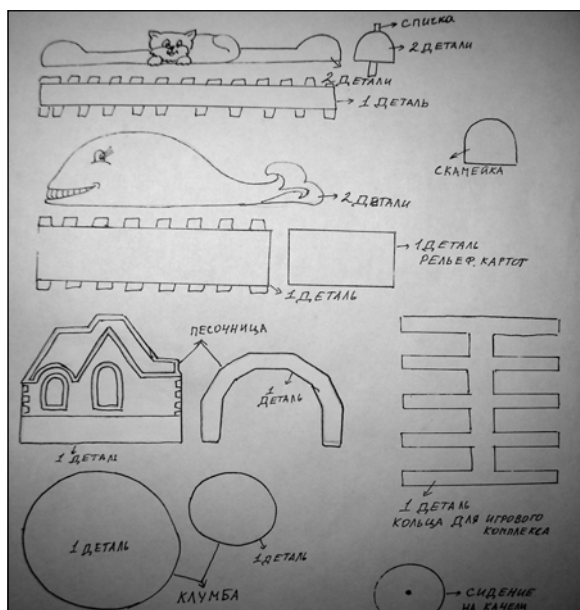 СПИЧКА
2 ДЕТАЛИ
2 ДЕТАЛИ
1 ДЕТАЛЬ
СКАМЕЙКА
2 ДЕТАЛИ
1 ДЕТАЛЬ
РЕЛЬЕФ. КАРТОТ
1 ДЕТАЛЬ
ПЕСОЧНИЦА
1
ДЕТАЛЬ
1 ДЕТАЛЬ
1 ДЕТАЛЬ
КОЛЬЦА ДЛЯ ИГРОВОГО
КОМПЛЕКСА
1 ДЕТАЛЬ
1 ДЕТАЛЬ
КЛУМБА
СИДЕНИЕ
НА КАЧЕЛИ